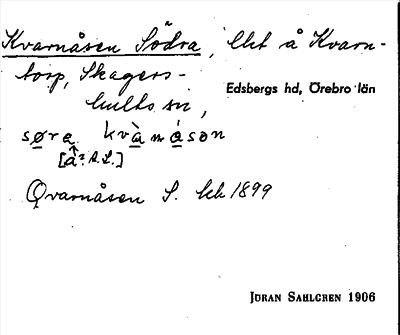 Kvarnåsen Södra, lht å Kvarn-
torp, Skagers-
hults sn, Edsbergs hd, Örebro län
søra kvàrnåsən
[å? A.L.]
Qvarnåsen S. kk 1899
JÖRAN SAHLGREN 1906